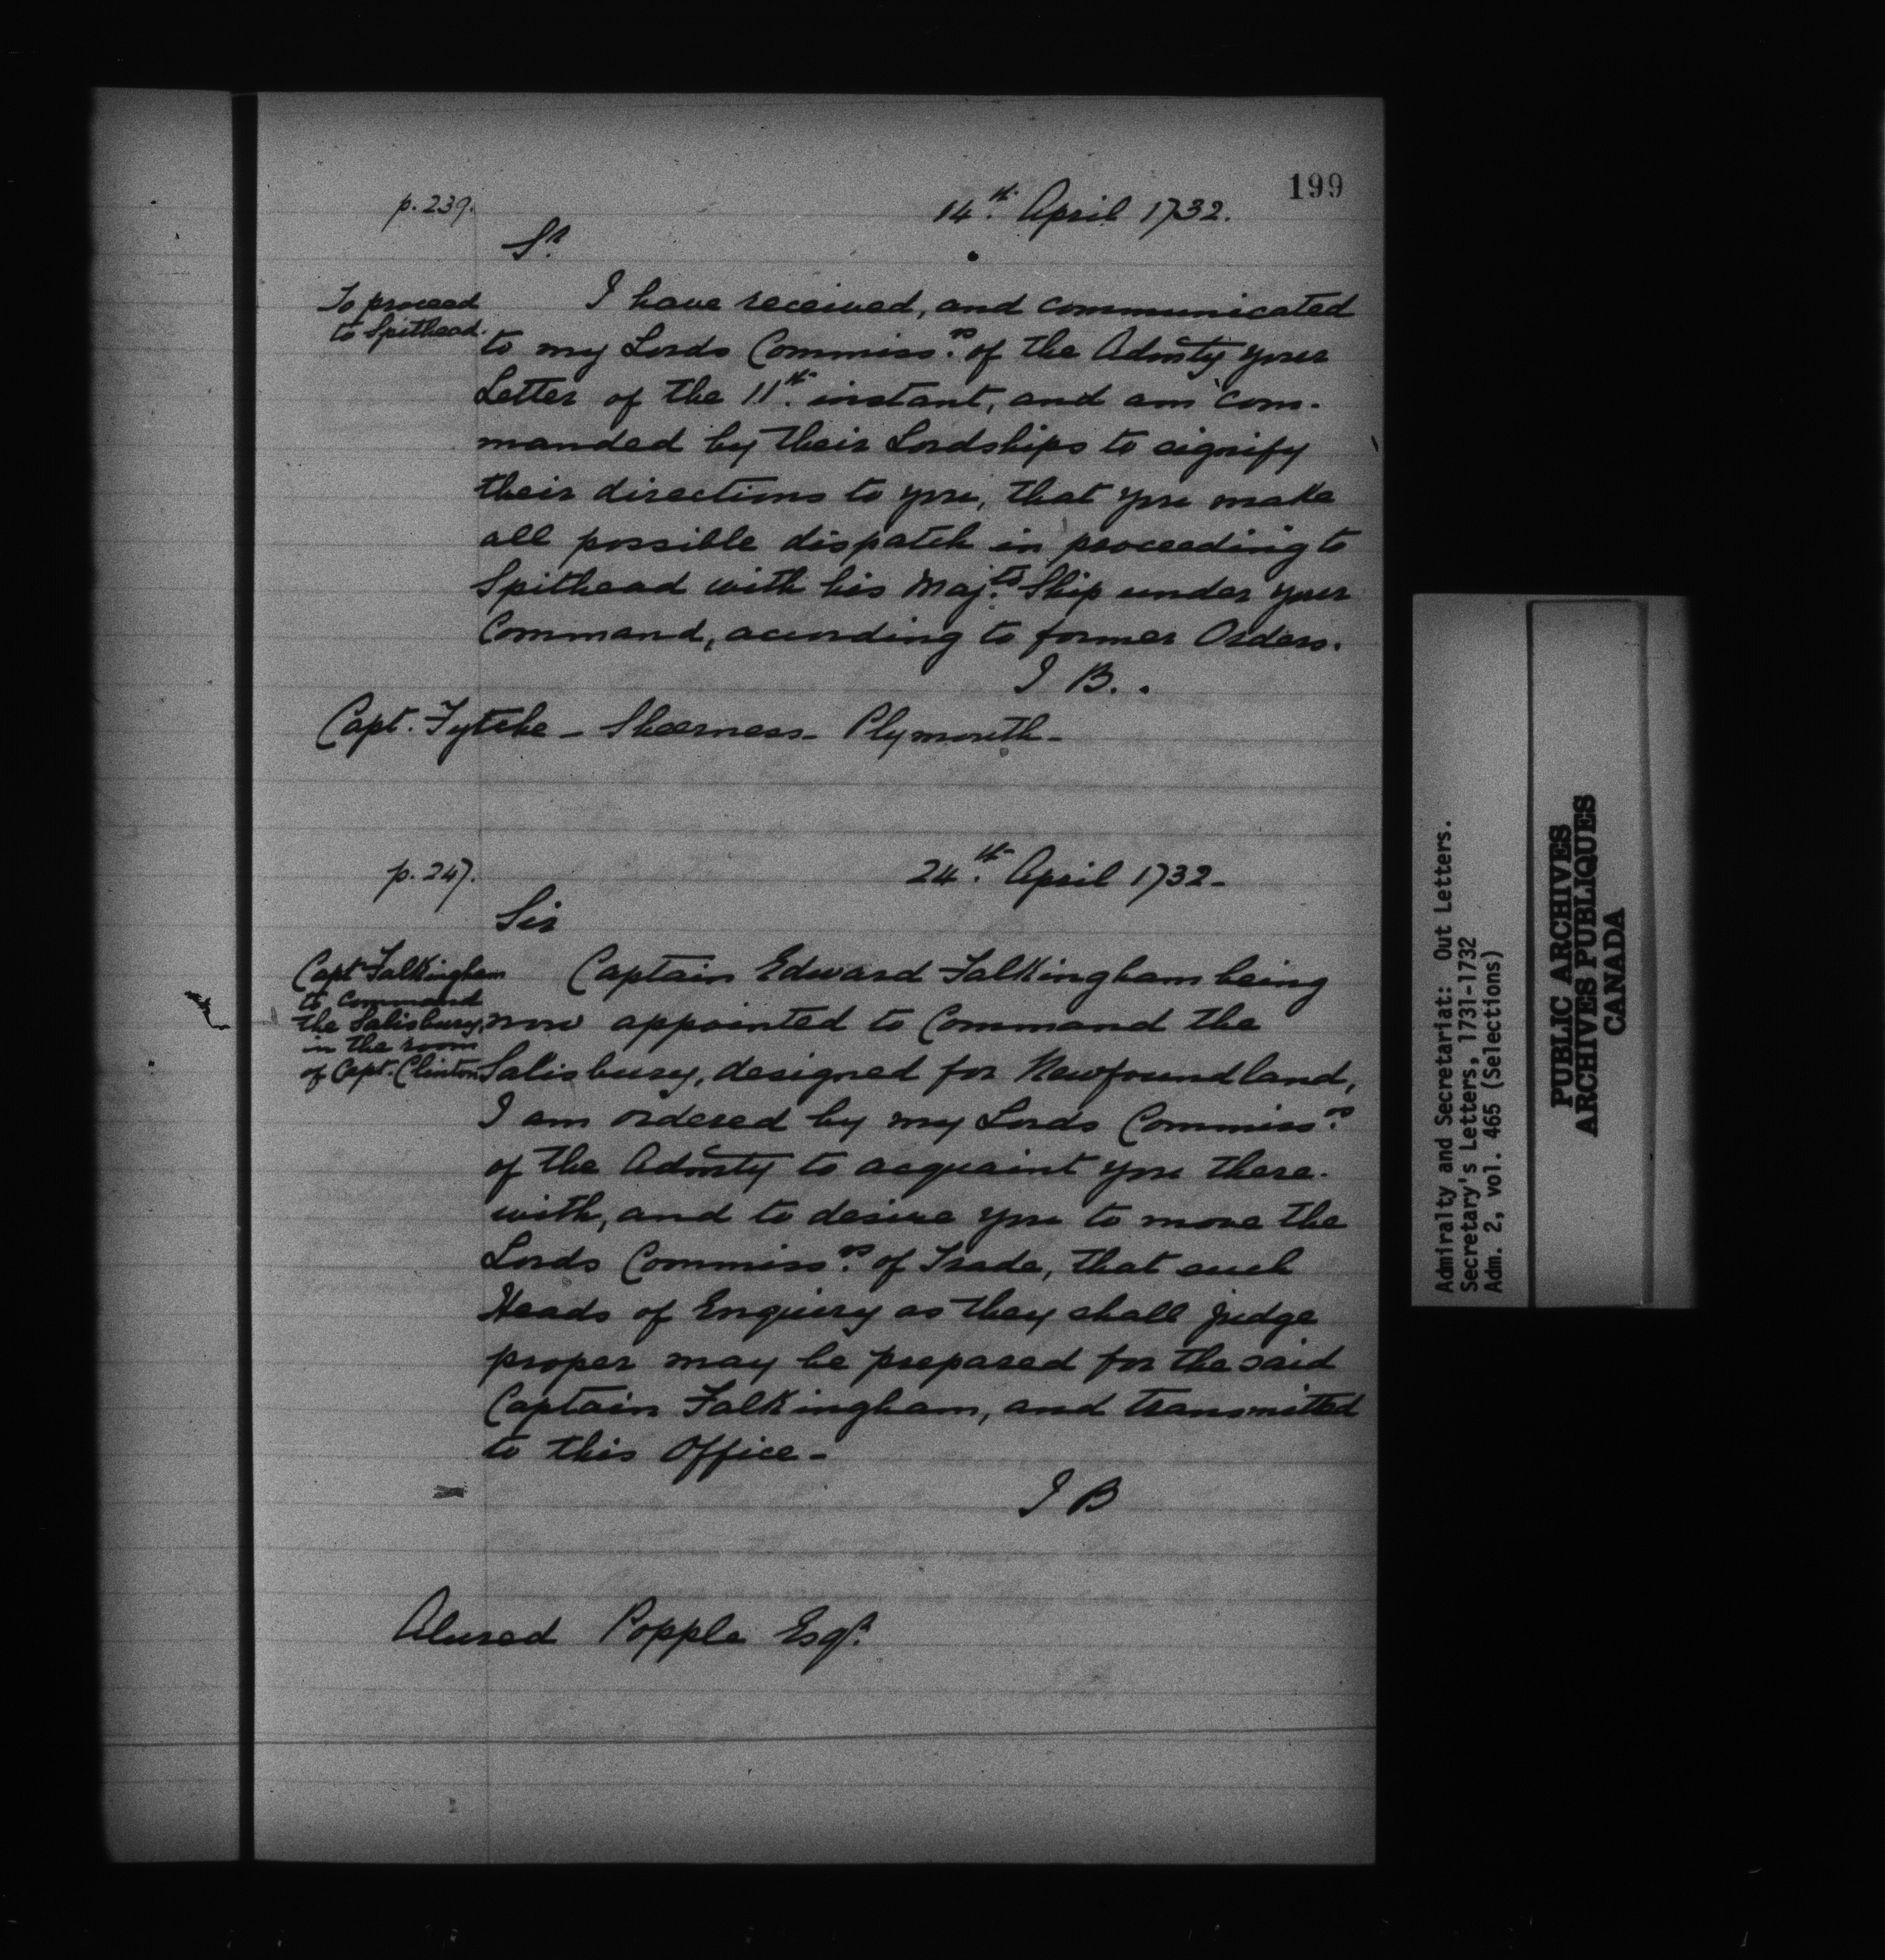 199
p. 239. 14th. April 1732.
Sr.
To proceed
to Spithead.
I have received, and communicated
to my Lords Commissrs. of the Admty your
Letter of the 11th. instant, and am com-
manded by their Lordships to signify
their directions to you, that you make
all possible dispatch in proceeding to
Spithead with his Majts. Ship under your
Command, according to former Orders.
J B..
Capt. Fytche - Sheerness - Plymouth -
p. 247. 24th. April 1732 -
Sir
Capt Falkingham
to command
the Salisbury,
in the room
of Capt. Clinton
Captain Edward Falkingham being
now appointed to Command the
Salisbury, designed for Newfoundland,
I am ordered by my Lords Commissrs.
of the Admty to acquaint you there-
with, and to desire you to move the
Lords Commissrs. of Trade, that such
Heads of Enquiry as they shall judge
proper may be prepared for the said
Captain Falkingham, and transmitted
to this Office -
J B
Alured Popple Esqr.
Admiralty and Secretariat: Out Letters.
Secretary's Letters, 1731-1732
Adm. 2, vol. 465 (Selections)
PUBLIC ARCHIVES
ARCHIVES PUBLIQUES
CANADA